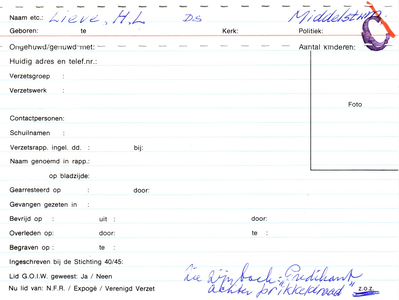 Naam etc.: Lieve, H.L Ds Middelstum
Geboren: te Kerk: Politiek:
Ongehuwd/gehuwd met: Aantal kinderen:
Huidig adres en telef.nr.:
Verzetsgroep :
Verzetswerk :
Foto
Contactpersonen:
Schuilnamen :
Verzetsrapp. ingel. dd. : bij:
Naam genoemd in rapp.:
op bladzijde:
Gearresteerd op : door:
Gevangen gezeten in :
Bevrijd op : uit : door:
Overleden op: door: te :
Begraven op : te :
Ingeschreven bij de Stichting 40/45:
Lid G.O.I.W. geweest: Ja / Neen
Zie zijn boek: "Predikant
achter prikkeldraad" z.o.z.
Nu lid van: N.F.R. / Expogé / Verenigd Verzet